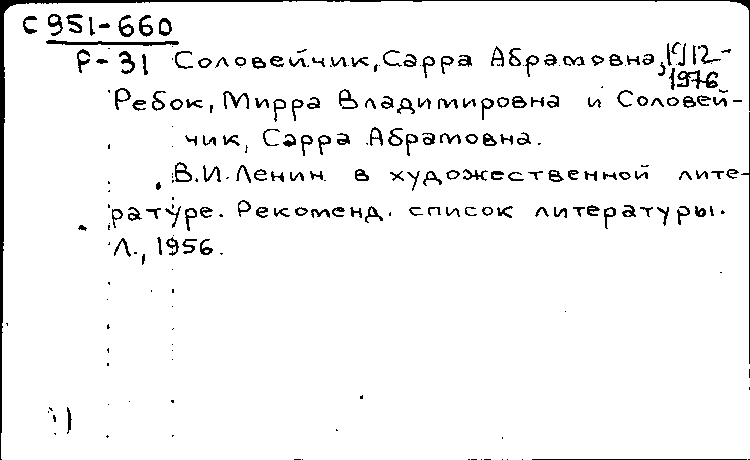 С 951-660
Р-31 Соловейчик, Сарра Абрамовна, 1912-
1976
Ребок, Мирра Владимировна и Соловей-
чик, Сарра Абрамовна.
В.И. Ленин в художественной лите-
ратуре. Рекоменд. список литературы.
Л., 1956.